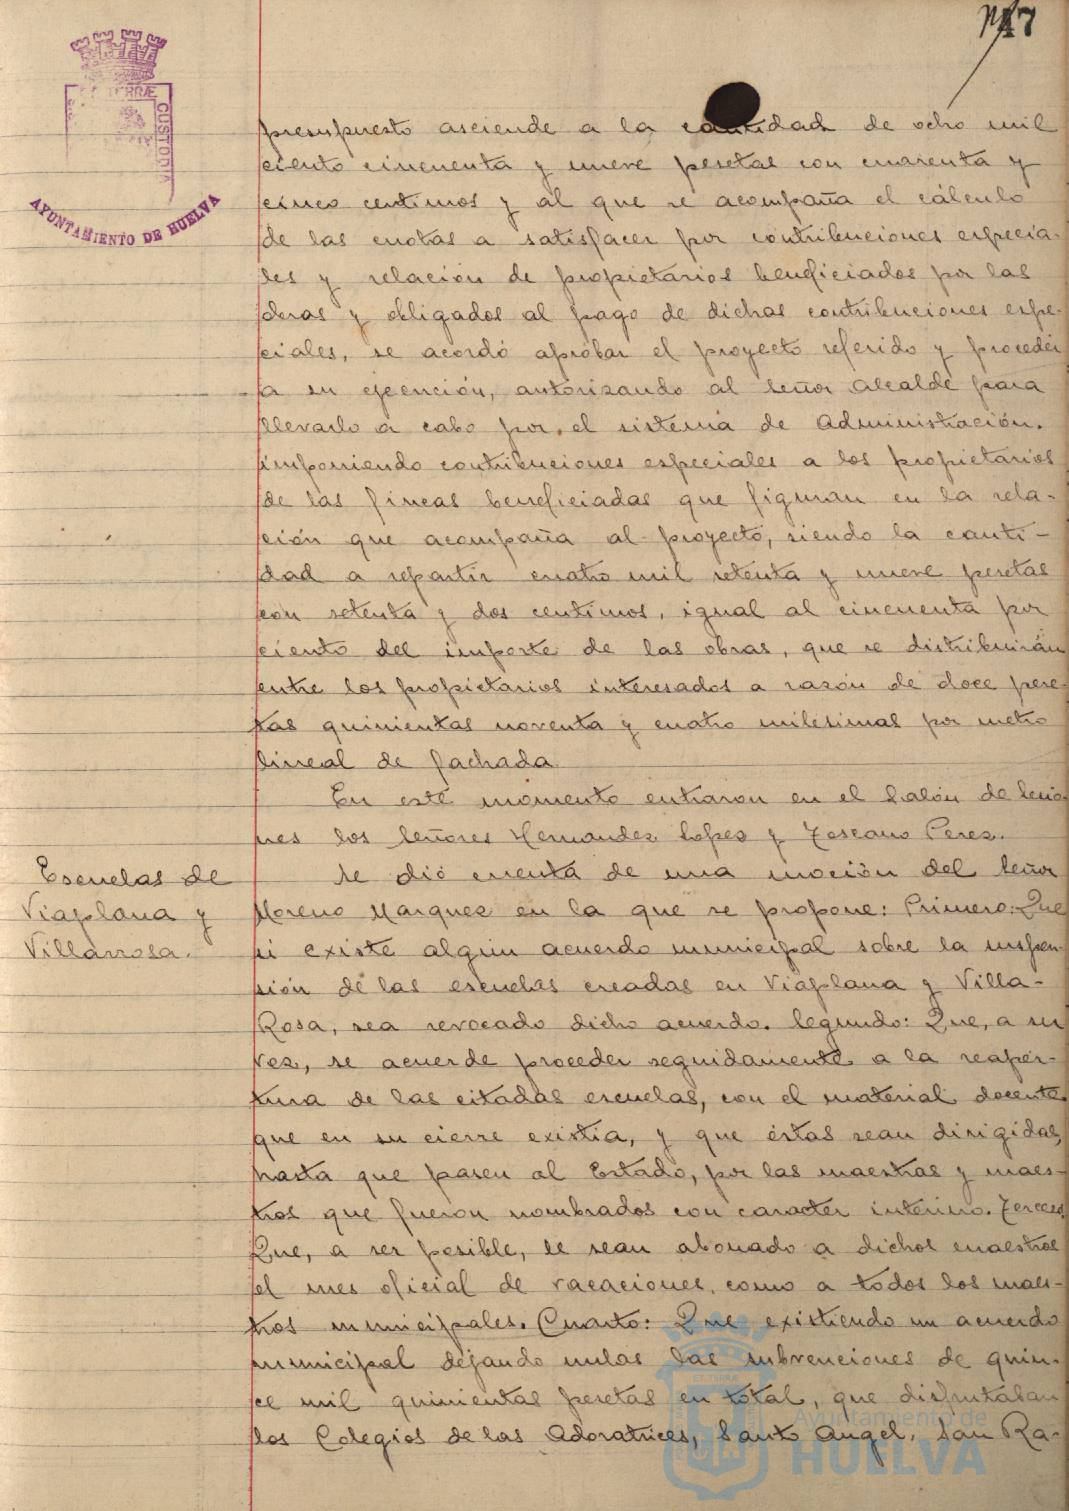 47
TERRÆ
CUSTODIA
AYUNTAMIENTO DE HUELVA
presupuesto asciende a la cantidad de ocho mil
ciento cincuenta y nueve pesetas con cuarenta y
cinco centimos y al que se acompaña el cálculo
de las cuotas a satisfacer por contribuciones especia-
les y relación de propietarios beneficiados por las
obras y obligados al pago de dichas contribuciones espe-
ciales, se acordó aprobar el proyecto referido y proceder
a su ejecución, autorizando al Señor Alcalde para
llevarlo a cabo por el sistema de Administración.
imponiendo contribuciones especiales a los propietarios
de las fincas beneficiadas que figuran en la rela-
ción que acompaña al proyecto, siendo la canti-
dad a repartir cuatro mil setenta y nueve pesetas
con setenta y dos centimos, igual al cincuenta por
ciento del importe de las obras, que se distribuirán
entre los propietarios interesados a razón de doce pese-
tas quinientas noventa y cuatro milesimas por metro
lineal de fachada.
En este momento entraron en el Salón de Sesio-
nes los Señores Hernandez Lopez y Toscano Perez.
Escuelas de
Viaplana y
Villarrosa.
Se dió cuenta de una moción del Señor
Moreno Marquez en la que se propone: Primero: Que
si existe algún acuerdo municipal sobre la suspen-
sión de las escuelas creadas en Viaplana y Villa-
Rosa, sea revocado dicho acuerdo. Segundo: Que, a su
vez, se acuerde proceder seguidamente a la reaper-
tura de las citadas escuelas, con el material docente
que en su cierre existia, y que éstas sean dirigidas,
hasta que pasen al Estado, por las maestras y maes-
tros que fueron nombrados con caracter interino. Tercero
Que, a ser posible, le sean abonado a dichos maestros
el mes oficial de vacaciones, como a todos los maes-
tros municipales. Cuarto: Que existiendo un acuerdo
municipal dejando nulas las subvenciones de quin-
ce mil quinientas pesetas en total, que disfrutaban
los Colegios de las Adoratrices, Santo Angel, San Ra-
Ayuntamiento de
HUELVA